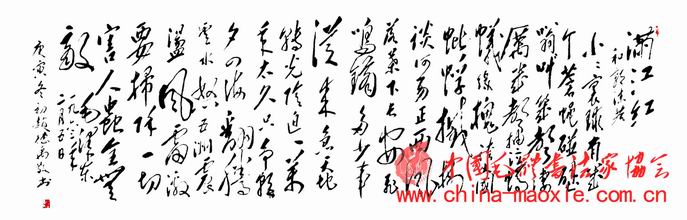 满江红
和郭沫若
小小寰球有几
个苍蝇碰壁
嗡嗡叫几声凄
厉几声抽泣蚂
蚁缘槐夸大国
蚍蜉撼树
谈何易正西风
落叶下长安飞
鸣镝多少事
从来急天地
转光阴迫一万
年太久只争朝
夕四海翻腾
云水怒五洲震
荡风雷激
要扫除一切
害人虫全无
敌
毛泽东
一九六三年
二月五日
庚寅冬初
中國毛體書法家協会
www.china-maoxie.com.cn